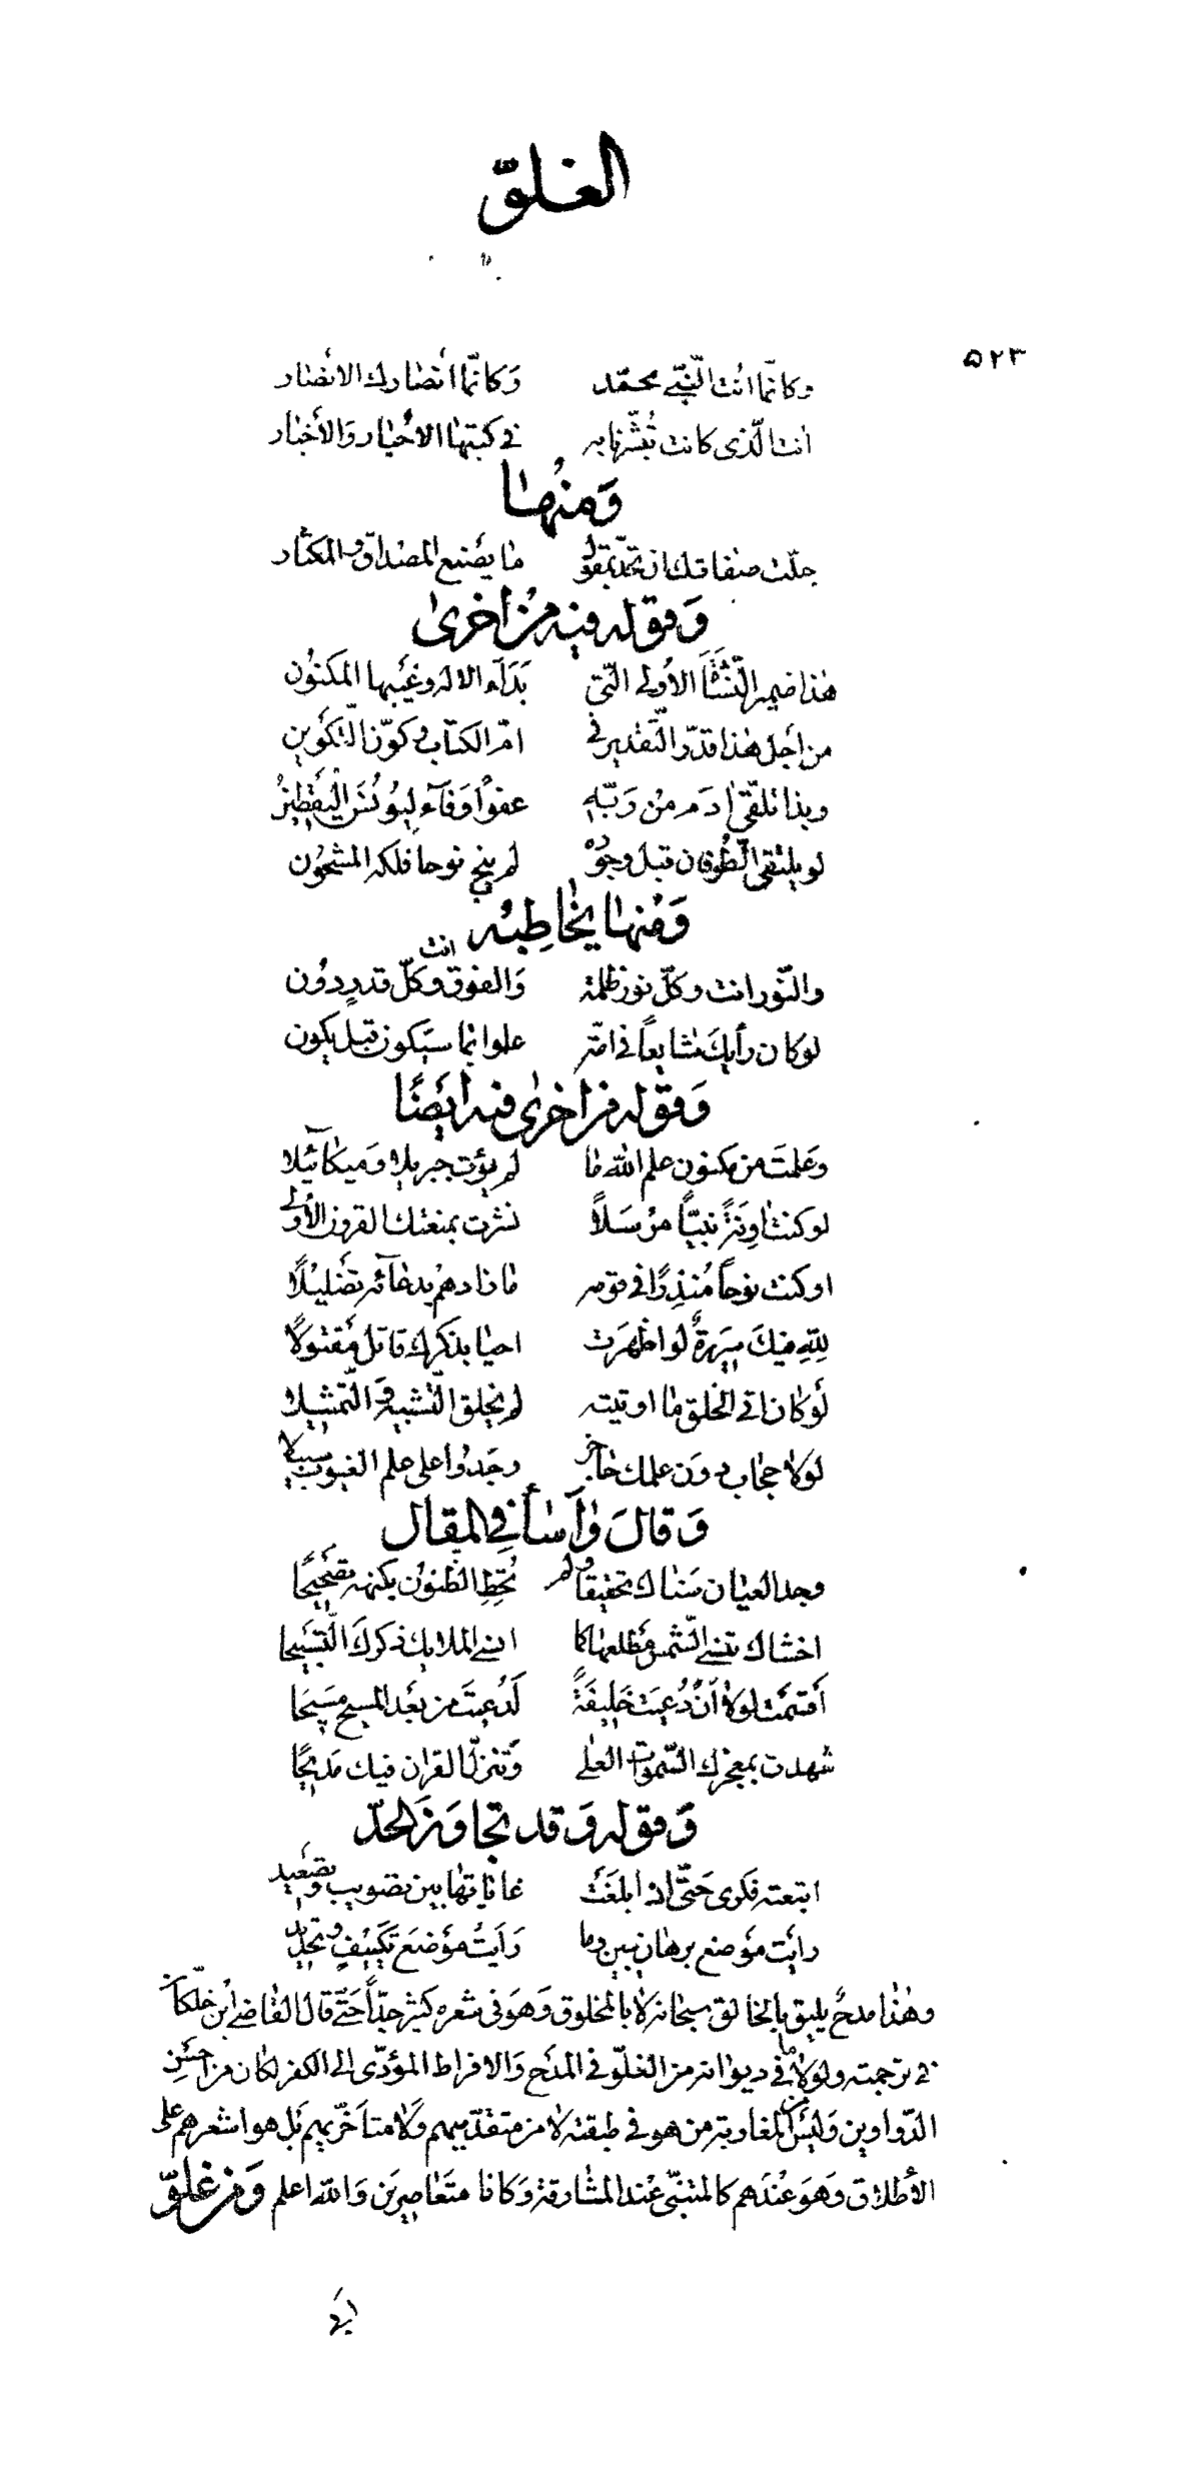 الغلوّ
٥٢٣
وكانّما انت النّبيّ محمّد وَكانّما أنصارك الانصار
انت الّذى كانت تُبشّرنا به في كتبها الاحبار وَالأخبار
وَمنُهٰا
جلّت صفاتك ان تحدّ بمقول مٰا يصَنع المصْداق والمكثار
وَقوله فيه من اخرىٰ
هٰذا ضمير النّشَأَة الأولى الّتي بَدَأَ الاله وغيَبها المكنوُن
من أجل هٰذا قدّر التّقدير في امّ الكتاب وكوّن التكوين
وبذا تلقّىٰ ادَم من رَبّه عفواً وَفَآء ليوُنسَ اليَقطينُ
لو يلتقى الطّوفان قبل وجوُده لم ينج نوحا فلكه المشحوُن
وَمنهٰا يخٰاطِبُه
والنّور انت وكلّ نور ظلمة وَالفوق انت وكلّ قدر دوُن
لوكان رأيكَ شايعاً في امّته علموا بما سيَكون قبل يكون
وَقوله من اخرىٰ فيه ايَضًا
وعَلمتَ من مكنون علم الله مٰا لم يؤت جبريلا وَميكٰائيلا
لو كنت اٰونَةً نبيّاً مرُسَلاً نشرت بمبعثك القرون الأولىٰ
اوكنت نوحاً مُنذِرًا في قومه مٰا زادهم بدعآئه تضَليلًا
لِلّهِ فيكَ سَرِيرَةٌ لو اظهرَت احيا بذكرك قاتل مَقتولًا
لَوكٰان اتى الخلق مٰا اوتيته لم يخلق التّشبيه وَالتّمثيلا
لولا حجٰاب دوَن علمك حٰاجز وجَدوُا على علم الغيوب سبيلا
وَقالَ وَاَسٰأَ في المقال
وجد العيٰان سَنٰاك تحقيقا ولم تُحِطِ الظنوُن بكنهه تصَحيحًا
اخشٰاك تنسى الشّمس مَطلعهٰا كما انسى الملايك ذكركَ التّسَبيحا
أقسَمَت لولا اَنْ دُعِيتَ خَليفَةً لَدُعيتَ من بعَد المسيح مسَيحَا
شهدت بمعجزك السّموات العلٰى وَتنزلّ القراٰن فيك مَديحًا
وَقوله وَقد تجٰا وَزَ الحَدّ
اتبعته فكرى حَتّى اذا بلغَت غاياتهٰا بين تصَويب وتصَعيد
رايَت موَضع برهان يبين وما رَأيَتُ موَضعَ تكَييفٍ وتحَديد
وهٰذا مدحٌ يليق بالخالق سبحانه لا بالمخلوق وَهوَ في شعره كثير جدّاً حَتّى قال القاضى ابن خلّكان
في ترجمته ولولا ما في ديوانه من الغلوّ في المدَح وَالافراط المؤدّى الى الكفر لكان من احسَن
الدّواوين وَليسَ في المغاربة من هو في طبقته لا من متقدّميهم وَلا متأخّريهم بَل هو اشعرهم على
الأطلاق وَهوَ عنْدَهم كالمتنبّي عنْد المشٰارقة وَكانا متعَاصِرين وَاللّه اعلم وَمن غلوّ